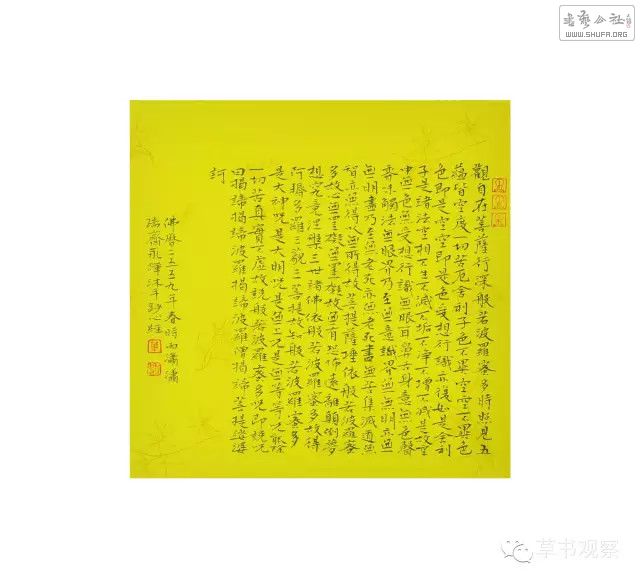 書藝公社
WWW.SHUFA.ORG
觀自在菩薩行深般若波羅蜜多時照見五
蘊皆空度一切苦厄舍利子色不異空空不異色
色即是空空即是色受想行識亦復如是舍利
子是諸法空相不生不滅不垢不淨不增不減是故空
中無色無受想行識無眼耳鼻舌身意無色聲
香味觸法無眼界乃至無意識界無無明亦無
無明盡乃至無老死亦無老死盡無苦集滅道無
智亦無得以無所得故菩提薩埵依般若波羅蜜
多故心無罣礙無罣礙故無有恐怖遠離顛倒夢
想究竟涅槃三世諸佛依般若波羅蜜多故得
阿耨多羅三藐三菩提故知般若波羅蜜多
是大神咒是大明咒是無上咒是無等等咒能除
一切苦真實不虛故說般若波羅蜜多咒即說咒
曰揭諦揭諦波羅揭諦波羅僧揭諦菩提娑婆
訶
佛曆二五五九年春時雨瀟瀟
齋永 沐手鈔心經
草书观察